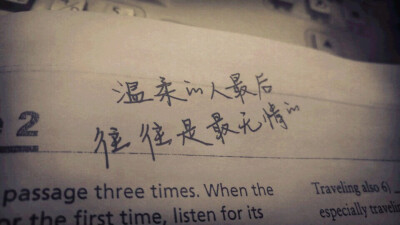 温柔的人最后
往往是最无情的
e 2
passage three times. When the
or the first time, listen for its
Traveling also 6)
especially traveling